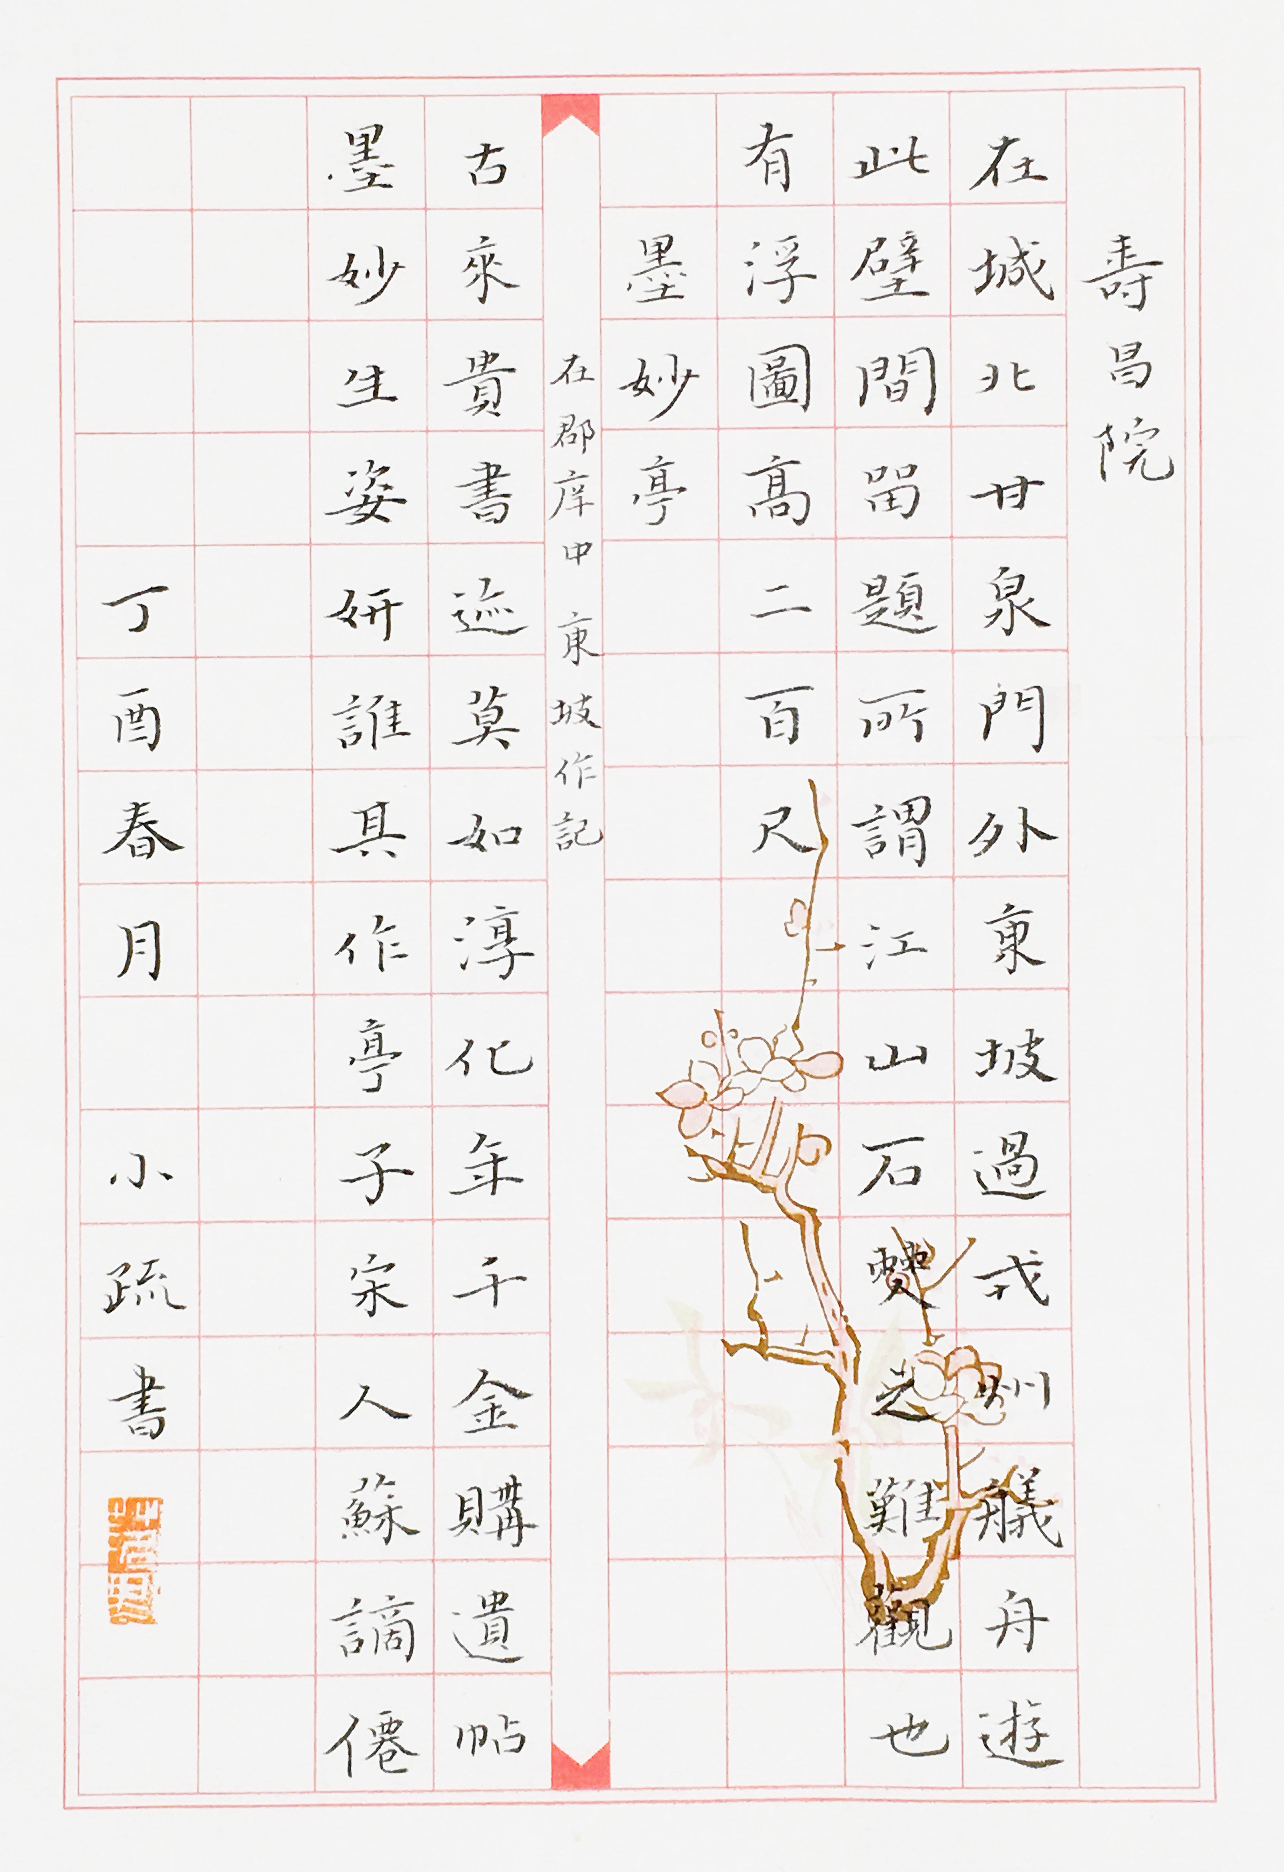 壽昌院
在城北甘泉門外東坡過戎州艤舟遊
此壁間留題所謂江山石甃之難觀也
有浮圖高二百尺
墨妙亭
在郡庠中東坡作記
古來貴書迹莫如淳化年千金購遺帖
墨妙生姿妍誰其作亭子宋人蘇謫僊
丁酉春月 小疏書